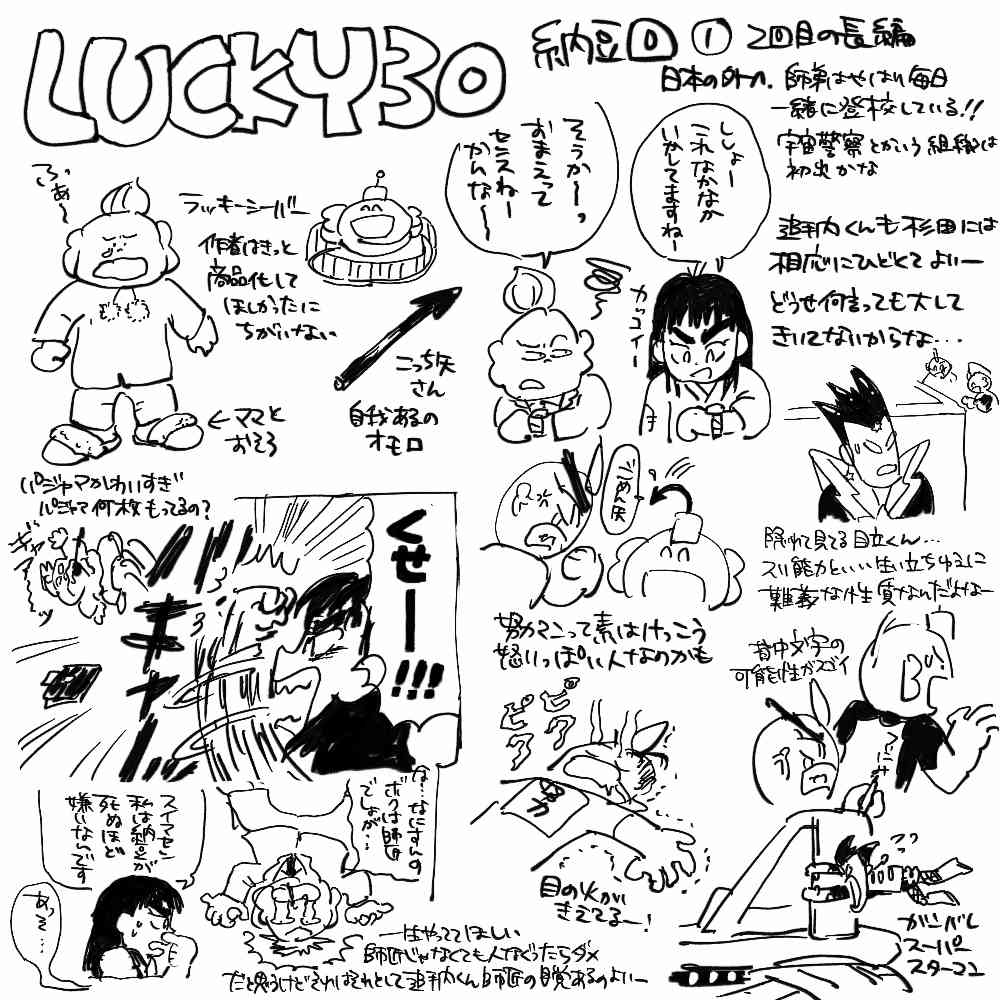 LUCKY30
納豆回 ① 2回目の長編
日本の外入。師弟はやはり毎日
一緒に登校している!!
宇宙警察とかいう組織は
初出かな
ふぁ〜
ラッキーシーバー
作者はきっと
商品化して
ほしかったに
ちがいない
←ママと
おそろ
パジャマかわいすぎ
パジャマ何枚もってるの?
こっち矢
さん
自我あるの
オモロ
そうかーっ
おまえって
センスねー
かんな〜
ししょー
これなかなか
いかしてますねー
カッコイー
追手内くんも杉田には
相応にひどくてよいー
どうせ何言っても大して
きいてないからな...
ごめん矢
努力マンって素はけっこう
怒いっぽい人なのかも
隠れて見てる目立くん...
スリ能力といい生い立ちゆえに
難義な性質なんだよなー
背中文字の
可能性がスゴイ
ギャアーッ
くせー!!!
スイマセン
私は納豆が
死ぬほど
嫌いなんです
あっそ...
な...なにすんの
ボクは師匠
でしょが...
一生やっててほしい
師匠じゃなくても人なぐったらダメ
だと思うけどそれはそれとして追手内くん師匠の自覚あるのよいー
努力
目の火が
きえてるー!
ガンバレ
スーパー
スターマン